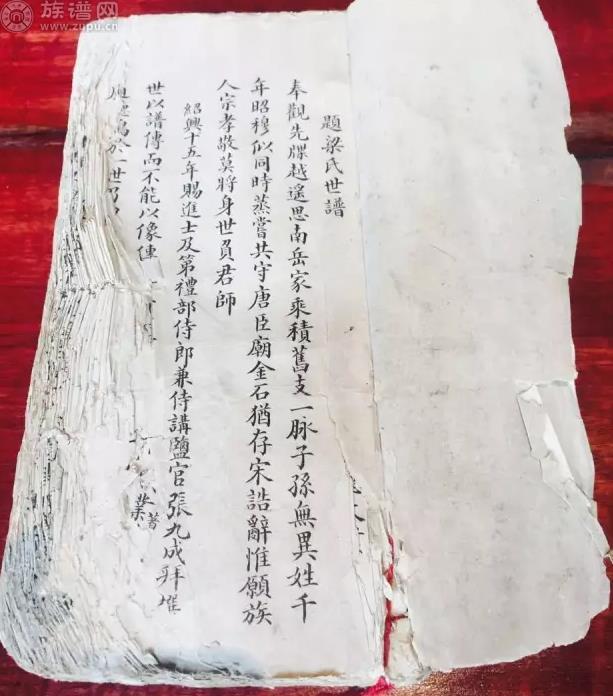 族谱网
www.zupu.cn
題梁氏世譜
奉觀先牒越遥思南岳家乘積舊支一脉子孫無異姓千
年昭穆似同時蒸嘗共守唐臣廟金石猶存宋誥辭惟願族
人宗孝敬莫將身世負君師
紹興十五年賜進士及第禮部侍郎兼侍講鹽官張九成拜
世以譜傳而不能以像
業著